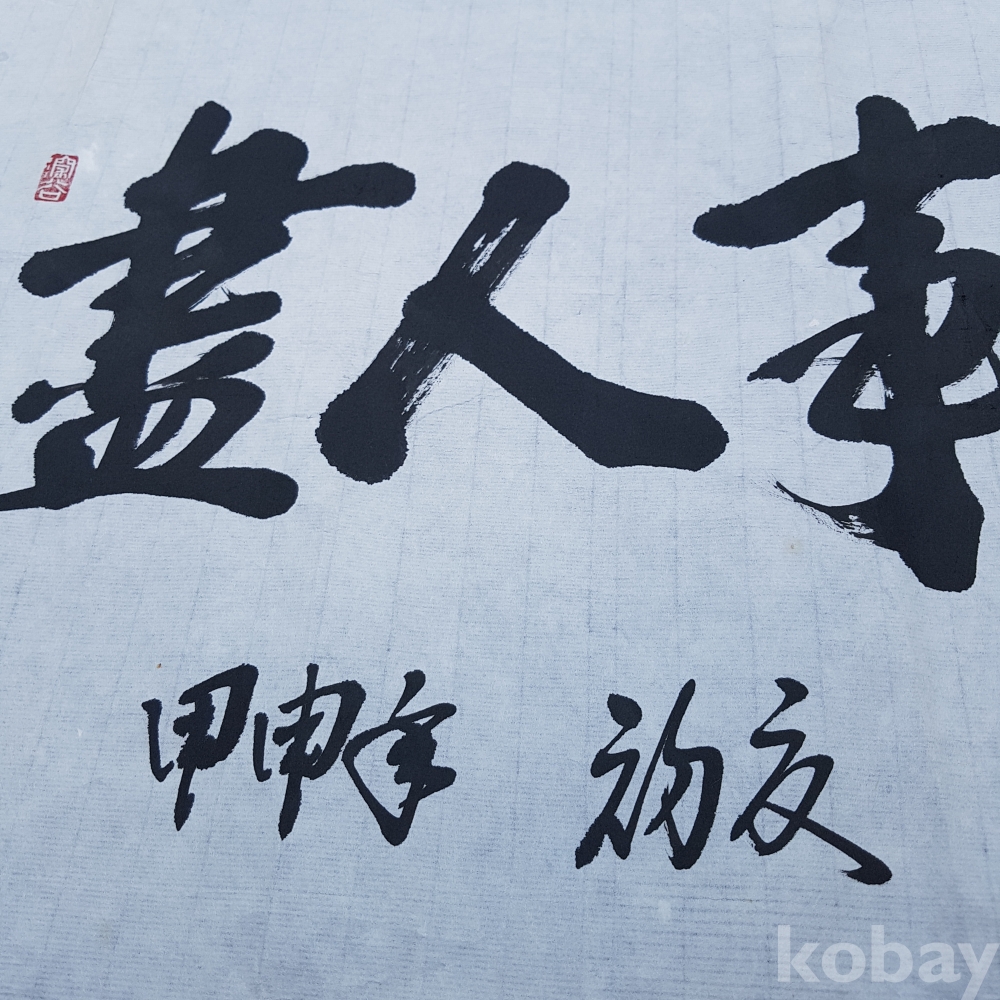 盡人事
甲申年 初夏
kobay